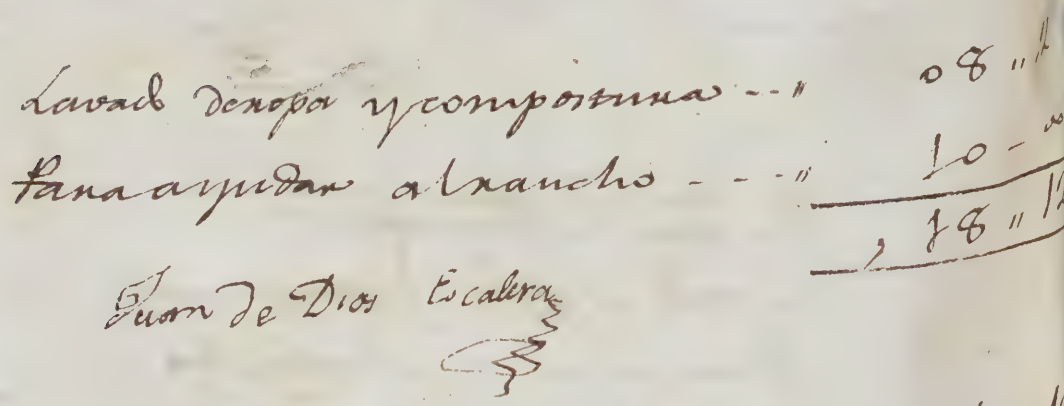 Lavado de ropa y compostura - - " 08 "
Para ayudar al rancho - - - " 10 -
18 "
Juan de Dios Escalera